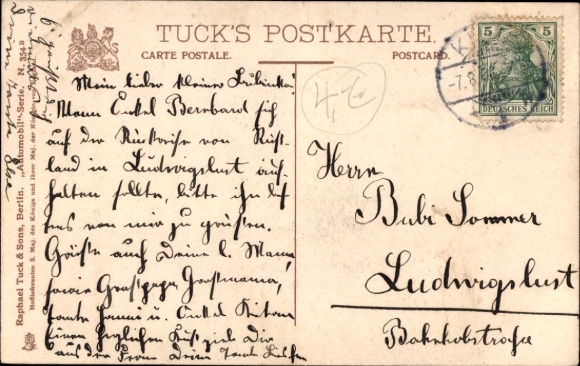 TUCK'S POSTKARTE.
CARTE POSTALE.
POSTCARD.
5
5
DEUTSCHES REICH
Raphael Tuck & Sons, Berlin. „Automobil"-Serie. N. 354.B
Hoflieferanten S. Maj. des Königs und Ihrer Maj. der Königin
Mein lieber kleiner
Wenn Onkel Bernhard sich
auf der Rückreise von Russ-
land in Ludwigslust auf-
halten sollte, bitte ihn
uns von mir zu grüßen.
Grüße auch Deine l. Mama,
sowie Großpapa, Großmama,
Tante u. Onkel
Einen herzlichen Kuß Dir
aus der Ferne Deine Tante
Herrn
Bubi Sommer
Ludwigslust
Bahnhofstraße